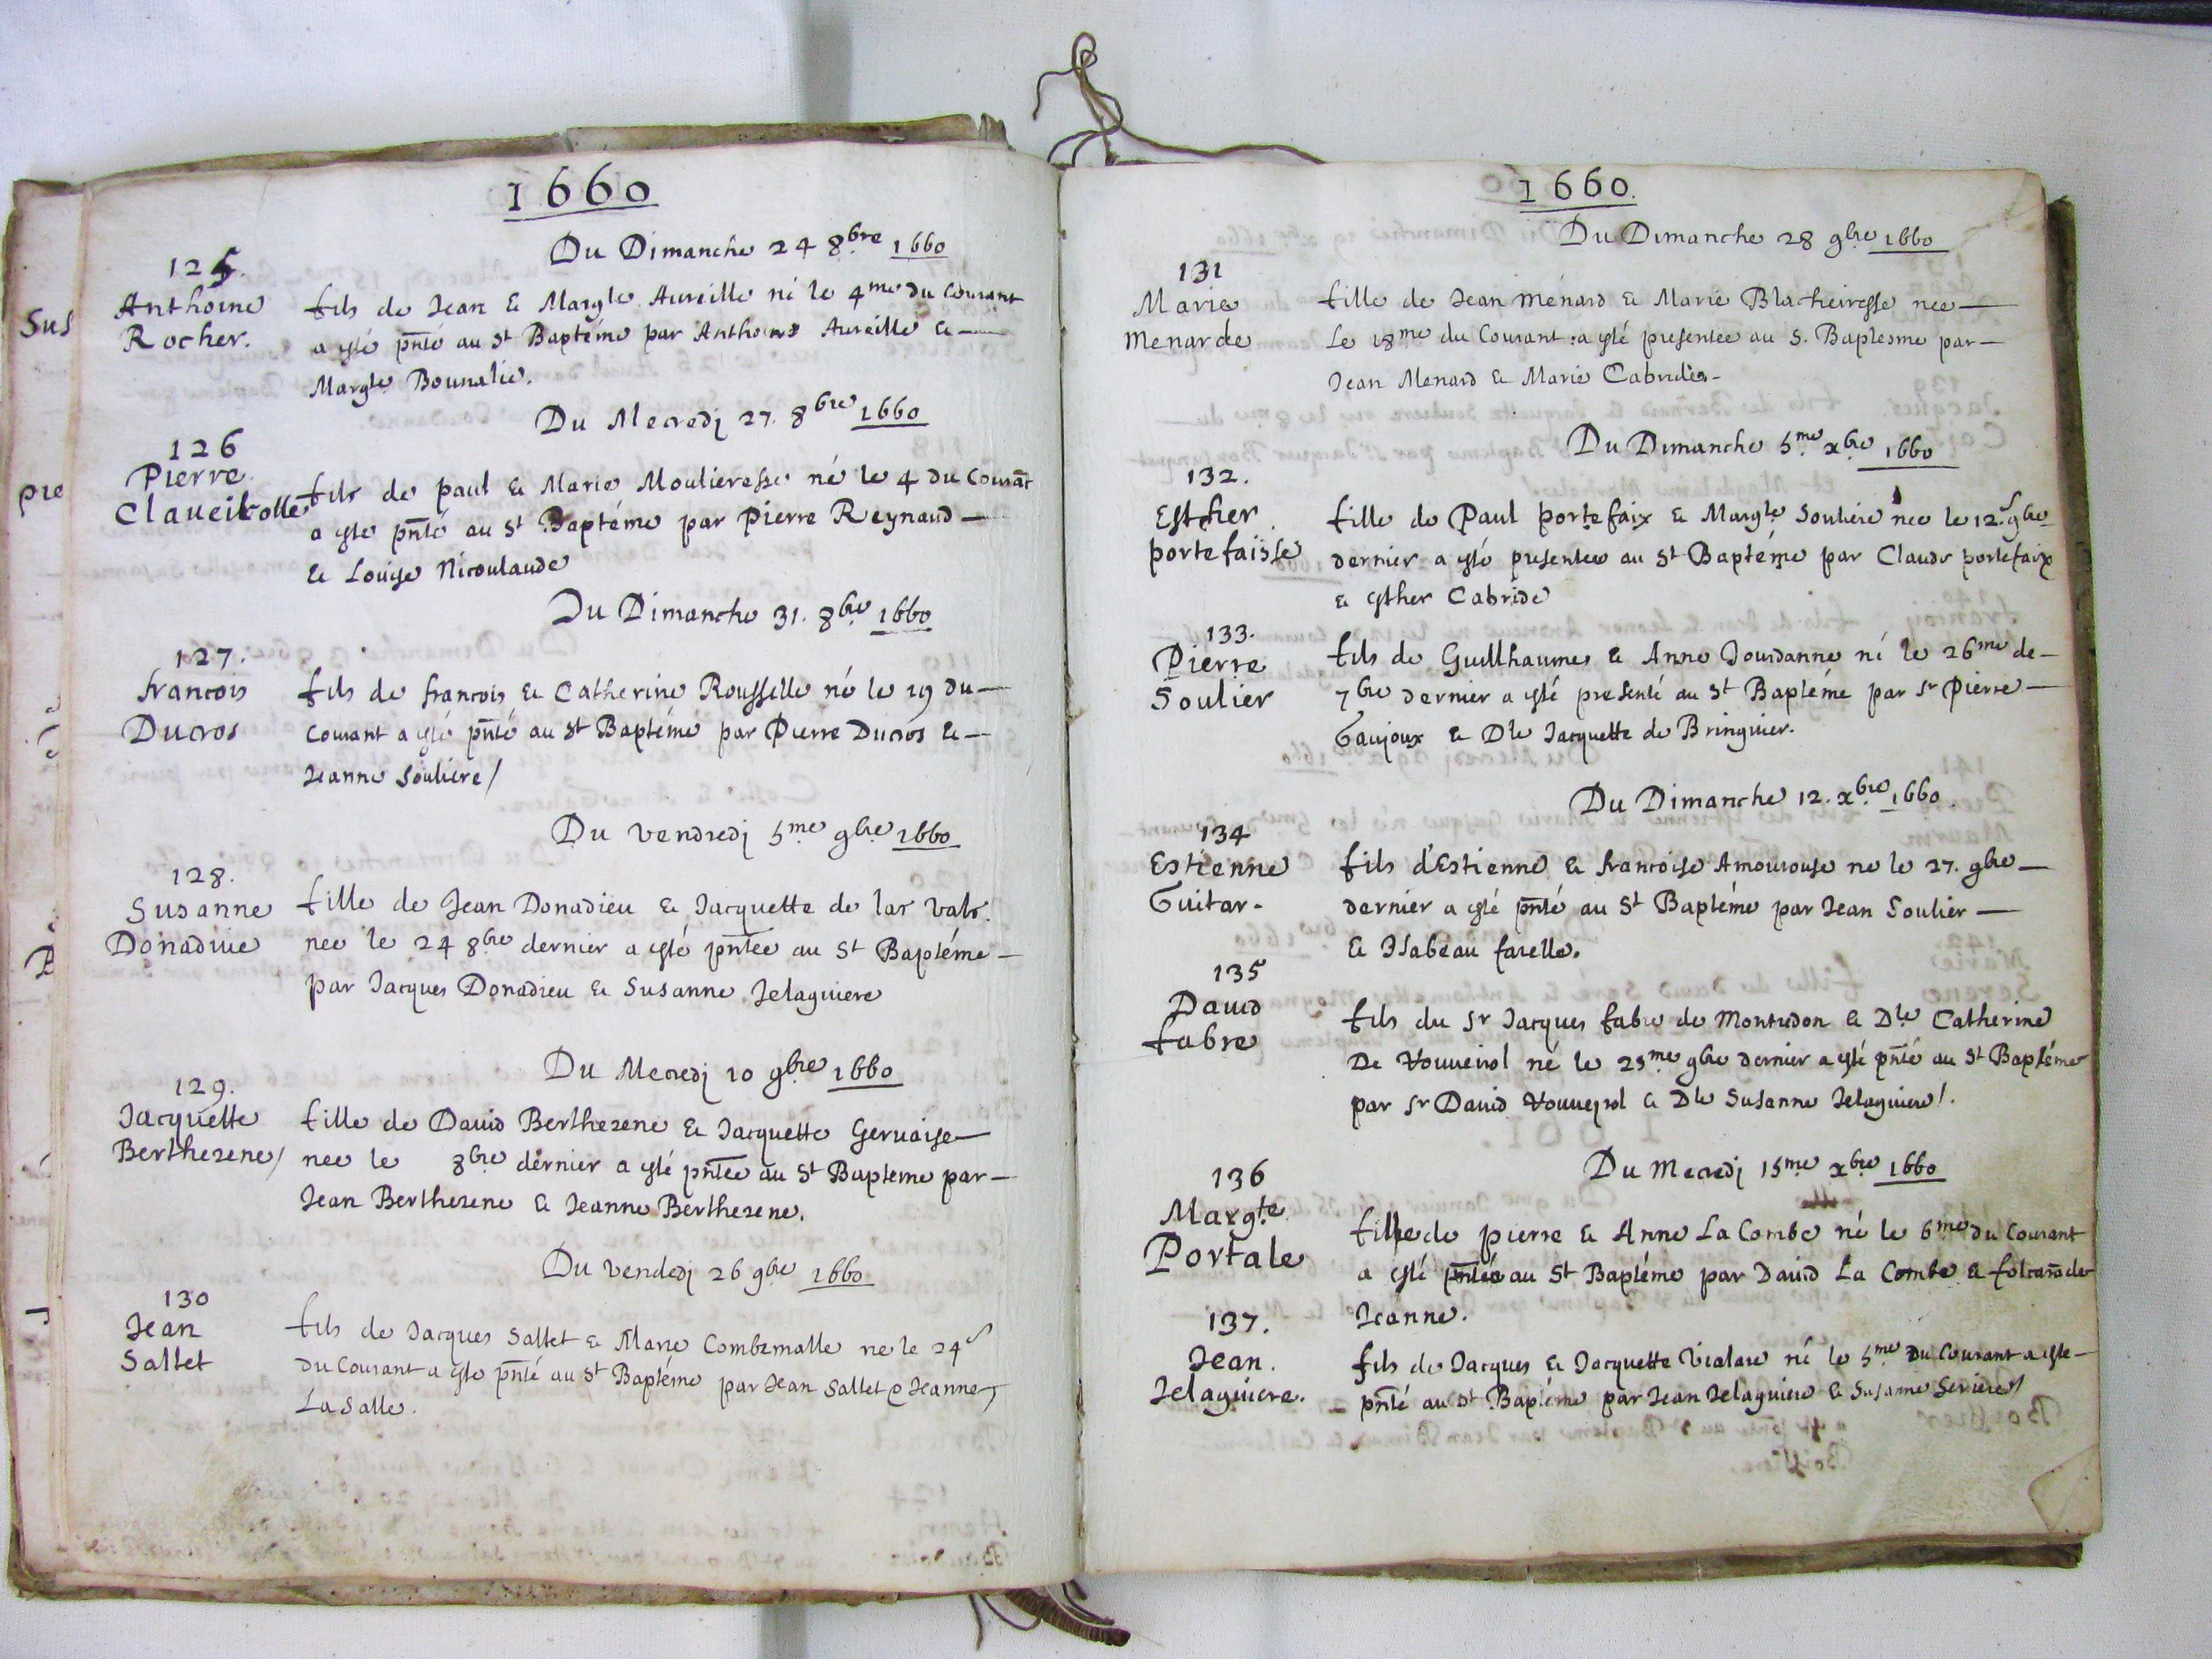 1660
Du Dimanche 24 8bre 1660
125.
Anthoine
Rocher.
fils de Jean & Margte Aureille né le 4me du Courant
a esté pnté au St Baptéme par Anthoine Aureille &
Margte Bounalie.
Du Mecredj 27. 8bre 1660
126
Pierre
Claueirolle
fils de paul & Marie Moulieresse né le 4 du Courat
a este pnté au St Baptéme par Pierre Reynaud
& Louise Nicoulaude
Du Dimanche 31. 8bre 1660
127.
francois
Ducros
fils de francois & Catherine Rousselle né le 19 du
Courant a esté pnté au St Baptéme par Pierre Ducros &
Jeanne Souliere/
Du vendredj 5me 9bre 1660
128.
Susanne
Donadiue
fille de Jean Donadieu & Jacquette de las vals.
nee le 24 8bre dernier a esté pntee au St Baptéme
par Jacques Donadieu & Susanne Jelaguiere
Du Mecredj 10 9bre 1660
129.
Jacquette
Berthezene/
fille de Dauid Berthezene & Jacquette Geruaise
nee le 8bre dernier a esté pntee au St Bapteme par
Jean Berthezene & Jeanne Berthezene.
Du vendedj 26 9bre 1660
130
Jean
Saltet
fils de Jacques Saltet & Marie Combemalle ne le 24e
du Courant a este pnté au St Baptéme par Jean Saltet & Jeanne
La Salle.
1660.
Du Dimanche 28 9bre 1660
131
Marie
Menarde
fille de Jean Ménard & Marie Blacheiresse nee
Le 18me du Courant a esté presentee au S. Baptesme par
Jean Menard & Marie
Du Dimanche 5me xbre 1660
132.
Esther
portefaisse
fille de Paul portefaix & Margte Souliere nee le 12e 9bre
dernier a esté presentee au St Baptéme par Claude portefaix
& esther Cabride
133.
Pierre
Soulier
fils de Guilhaumes & Anne Jourdanne né le 26me de
7bre dernier a esté presenté au St Baptéme par Sr Pierre
Gaujoux & Dle Jacquette de Bringuier.
Du Dimanche 12. xbre 1660.
134
Estienne
Guitar
fils d'Estienne & francoise Amourouse ne le 27. 9bre
dernier a esté pnté au St Baptéme par Jean Soulier
& Isabeau farelle.
135
Dauid
fabre
fils du Sr Jacques fabre de Montredon & Dle Catherine
De Vouueirol né le 25me 9bre dernier a esté pnté au St Baptéme
par Sr Dauid Vouueyrol & Dle Susanne Jelaguiere/.
Du Mecredj 15me xbre 1660
136
Margte
Portale
fille de pierre & Anne La Combe né le 6me du Courant
a esté pntée au St Baptéme par Dauid La Combe & folcarade
Jeanne.
137.
Jean
Jelaguiere.
fils de Jacques & Jacquette Vialare né le 5me du Courant a este
pnté au St Baptéme par Jean Jelaguiere & Susanne Seriere/